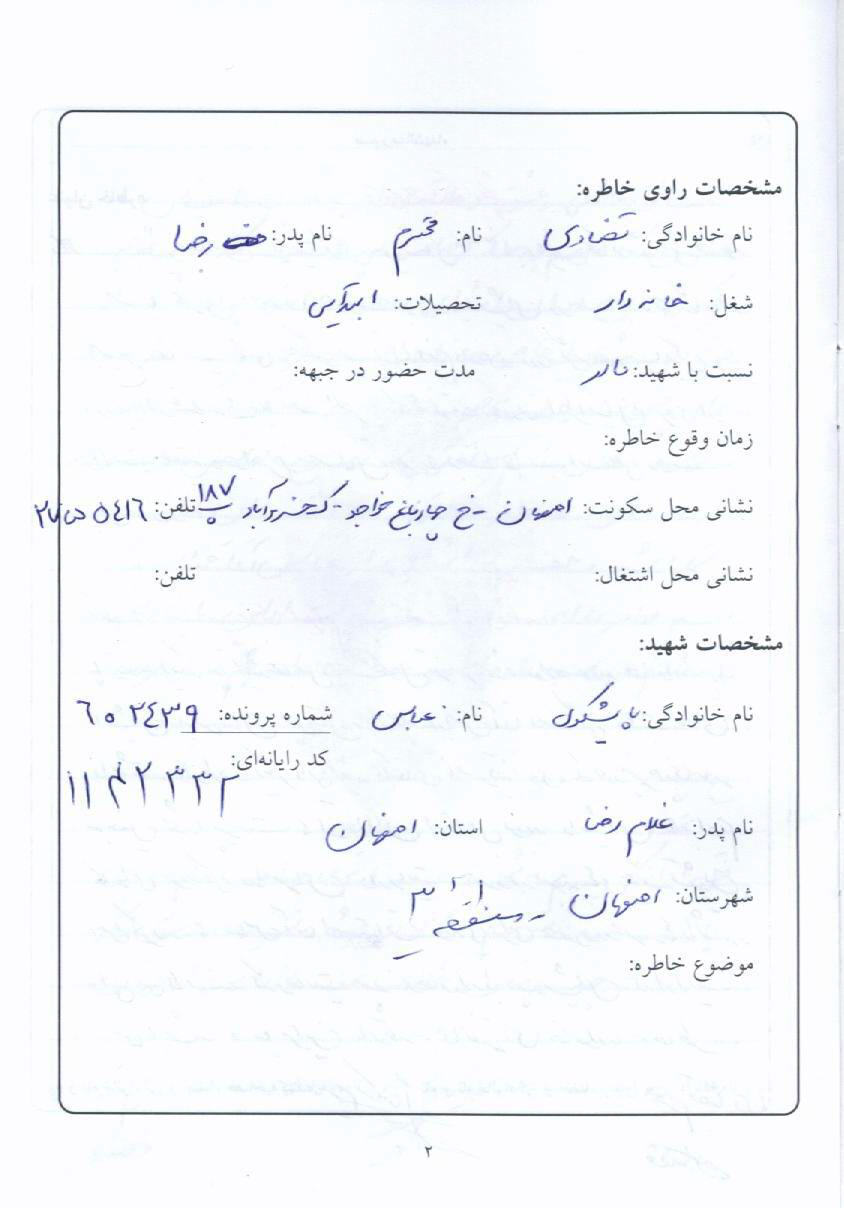 مشخصات راوی خاطره:
نام خانوادگی: تضادی نام: محترم نام پدر: رضا
شغل: خانه دار تحصیلات: ابتدایی
نسبت با شهید: مادر مدت حضور در جبهه:
زمان وقوع خاطره:
نشانی محل سکونت: اصفهان - خ چهارباغ خواجو - ک خسروآباد پ ۱۸۷ تلفن:
نشانی محل اشتغال: تلفن:
مشخصات شهید:
نام خانوادگی: نام: عباس شماره پرونده: ۶۰۲۴۳۹
کد رایانه‌ای:
۱۱۴۲۳۳۲
نام پدر: غلام رضا استان: اصفهان
شهرستان: اصفهان - منطقه ۳
موضوع خاطره:
۲